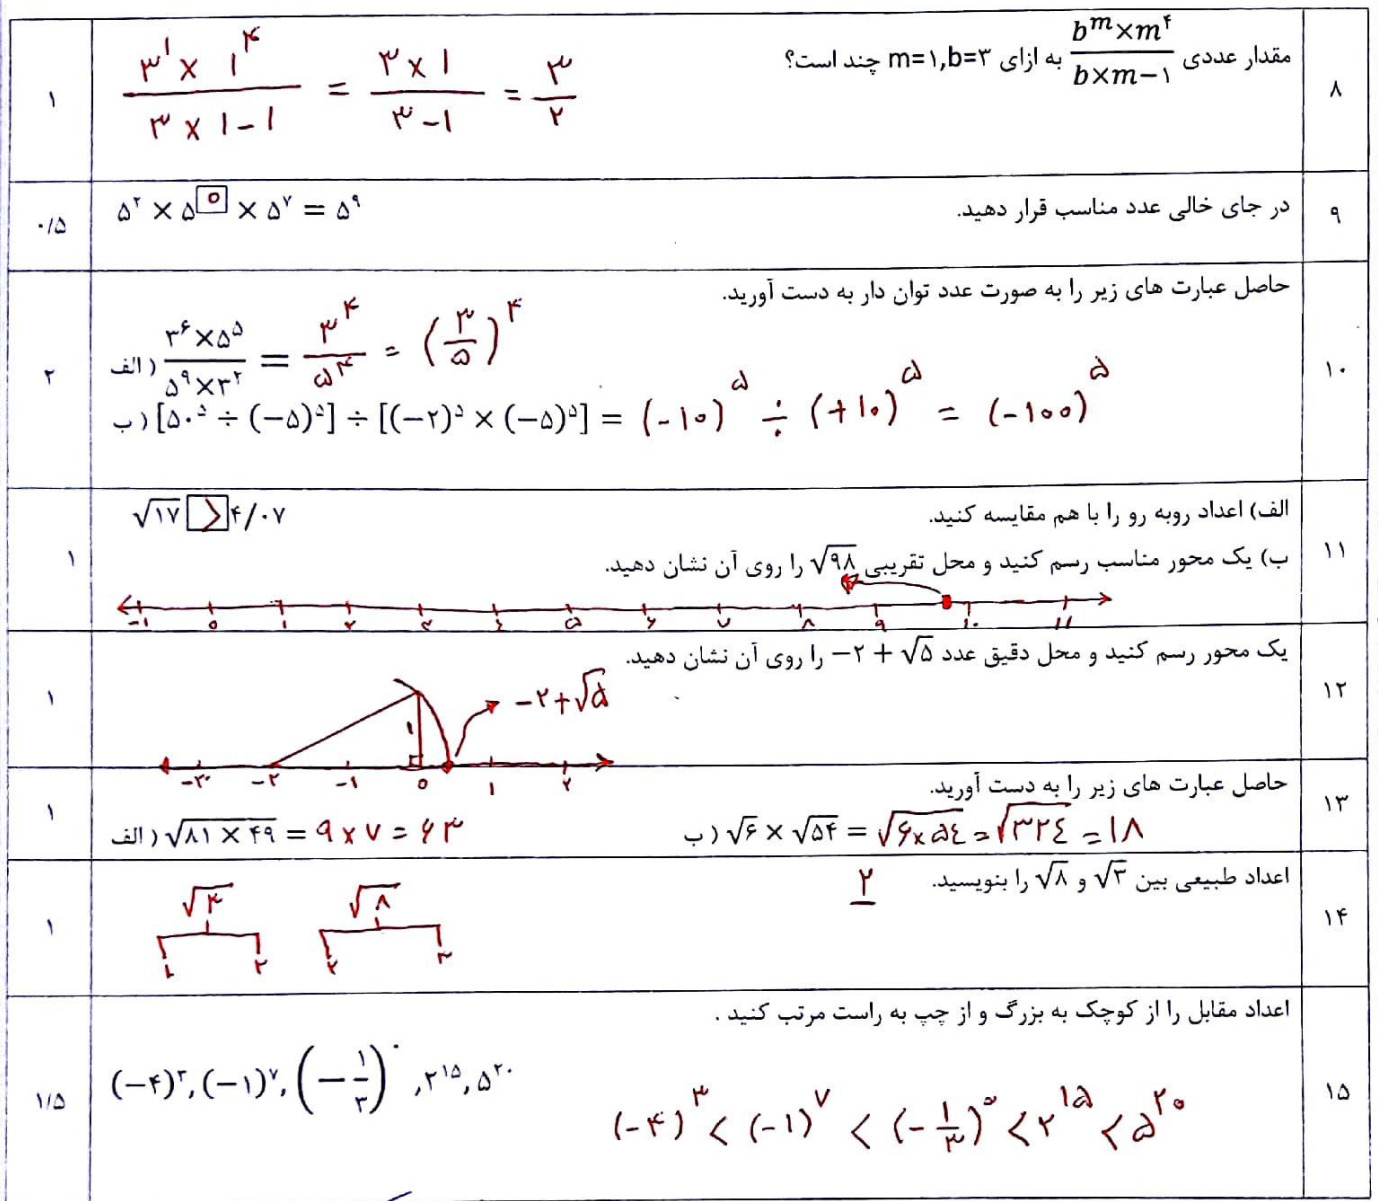 ۸
مقدار عددی (b^m×m^۴)/(b×m−۱) به ازای m=۱,b=۳ چند است؟
(۳^۱ × ۱^۴)/(۳ × ۱-۱) = (۳ × ۱)/(۳-۱) = ۳/۲
۱
۹
در جای خالی عدد مناسب قرار دهید.
۵^۲ × ۵^۰ × ۵^۷ = ۵^۹
۰/۵
۱۰
حاصل عبارت های زیر را به صورت عدد توان دار به دست آورید.
الف) (۳^۶×۵^۵)/(۵^۹×۳^۲) = ۳^۴/۵^۴ = (۳/۵)^۴
ب) [۵۰^۵ ÷ (−۵)^۵] ÷ [(−۲)^۵ × (−۵)^۵] = (-۱۰)^۵ ÷ (+۱۰)^۵ = (-۱۰۰)^۵
۲
۱۱
الف) اعداد روبه رو را با هم مقایسه کنید.
√۱۷ > ۴/۰۷
ب) یک محور مناسب رسم کنید و محل تقریبی √۹۸ را روی آن نشان دهید.
-۱ ۰ ۱ ۲ ۳ ۴ ۵ ۶ ۷ ۸ ۹ ۱۰ ۱۱
۱
۱۲
یک محور رسم کنید و محل دقیق عدد −۲ + √۵ را روی آن نشان دهید.
-۲+√۵
۱
-۳ -۲ -۱ ۰ ۱ ۲
۱
۱۳
حاصل عبارت های زیر را به دست آورید.
الف) √(۸۱ × ۴۹) = ۹ × ۷ = ۶۳
ب) √۶ × √۵۴ = √(۶×۵۴) = √۳۲۴ = ۱۸
۱
۱۴
اعداد طبیعی بین √۳ و √۸ را بنویسید.
۲
√۳ √۸
۱ ۲ ۲ ۳
۱
۱۵
اعداد مقابل را از کوچک به بزرگ و از چپ به راست مرتب کنید .
(−۴)^۳, (−۱)^۷, (−۱/۳)^۰, ۲^۱۵, ۵^۲۰
(-۴)^۳ < (-۱)^۷ < (-۱/۳)^۰ < ۲^۱۵ < ۵^۲۰
۱/۵